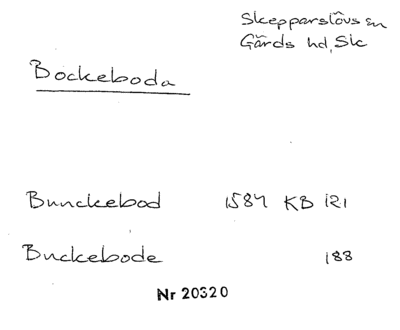 Skepparslövs sn
Gärds hd, Sk
Bockeboda
Bunckebod 1584 KB 121
Buckebode 188
Nr 20320